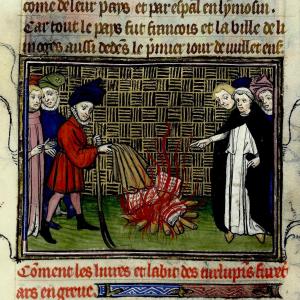 come de leur pays et par espãl en lymosin.
Car tout le pays fut francois et la ville de li
moges aussi dedẽs le pñmier iour de iuillet ens.
Cõment les liures et labit des turlupins furẽt
ars en greue.